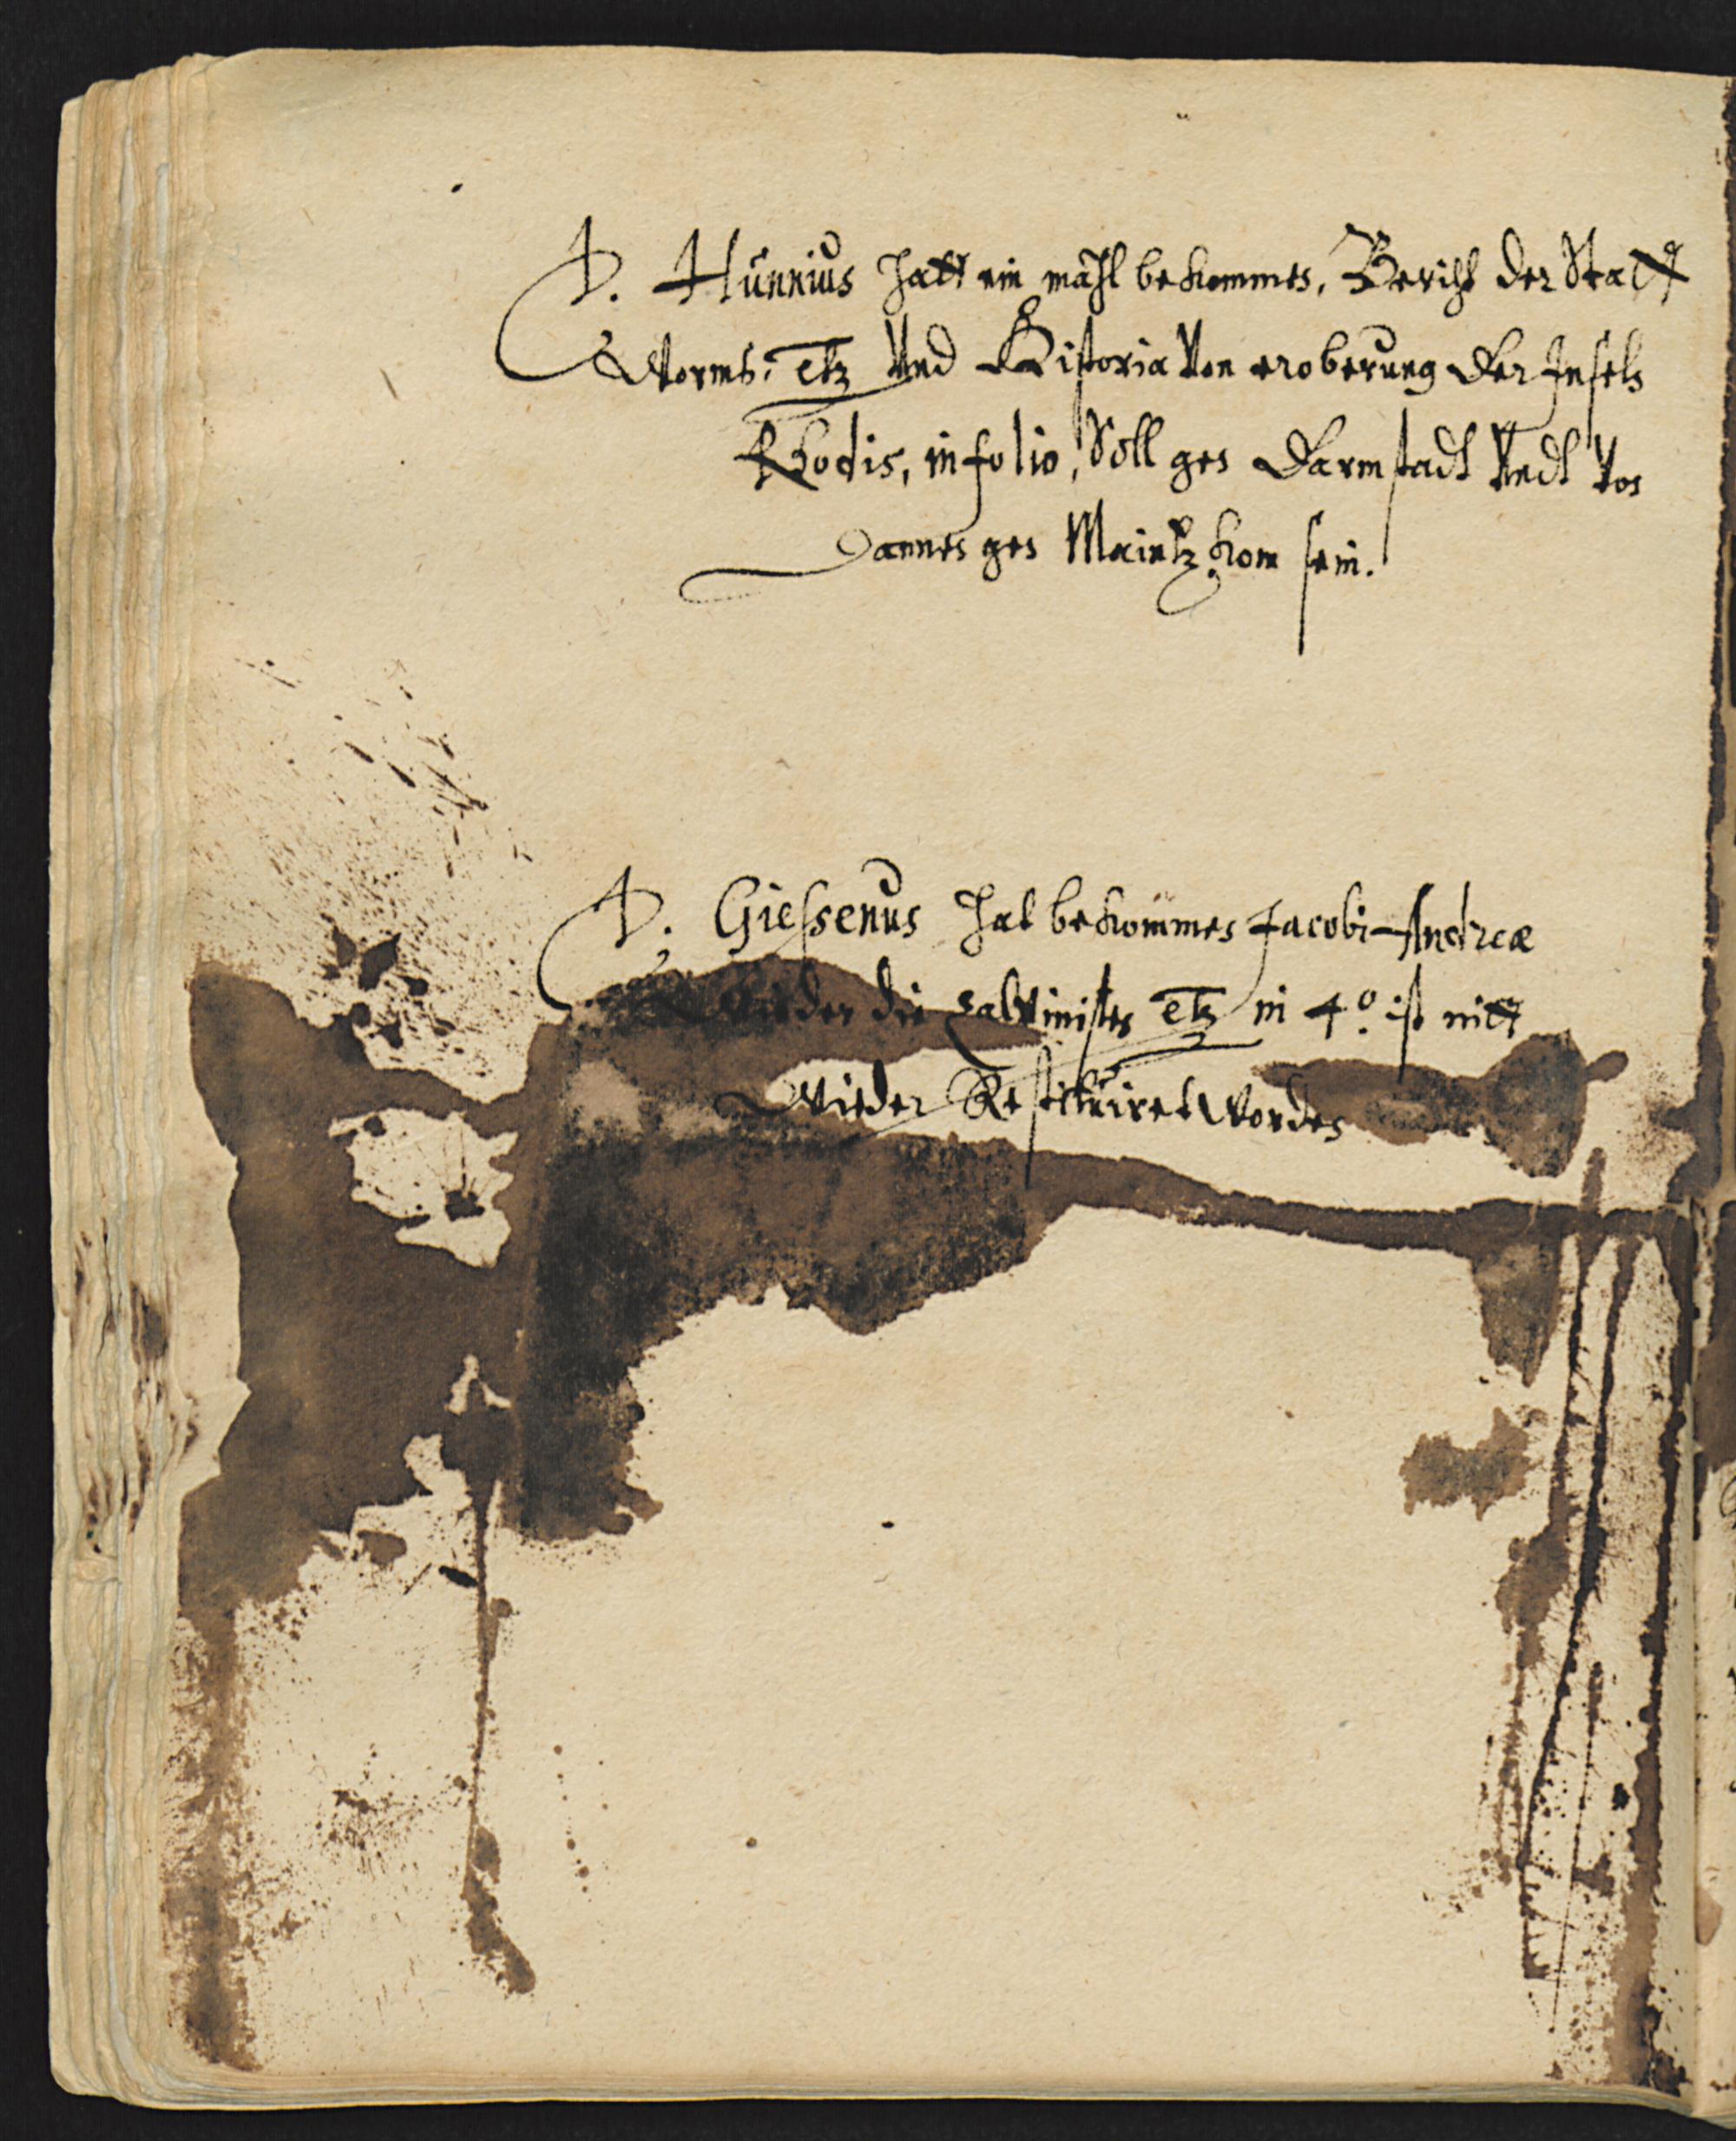 D. Hunnius hatt ein mahl bekommen, Bericht der Statt
Worms, etz Und Historia Von eroberung der Inseln
Rhodis, in folio, Soll gen Darmstadt Undt Von
dannen gen Maintz kom sein.
D. Giessenus hat bekommen Jacobi Andreæ
Wieder die Calvinisten etz in 4º ist nitt
Wieder Restituiret Worden